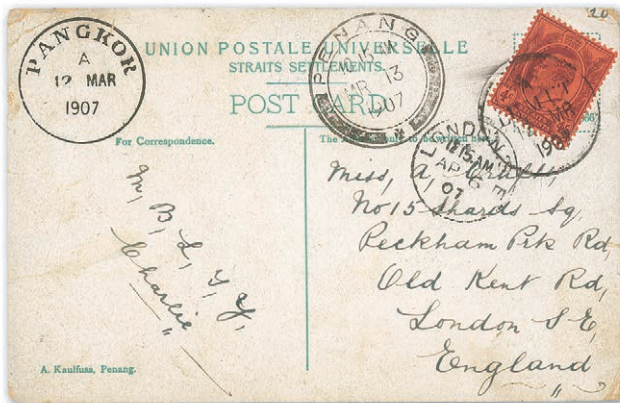 20
PANGKOR
A
12 MAR
1907
UNION POSTALE UNIVERSELLE
STRAITS SETTLEMENTS.
POST CARD
PENANG
MR 13
1907
LONDON
12.15 AM
AP 6
07
For Correspondence.
The Address only to be written here.
M, B, L, Y, Y,
Charlie
Miss, A,
No 15 Shards Sq,
Peckham Prk Rd,
Old Kent Rd,
London S E,
England
A. Kaulfuss, Penang.